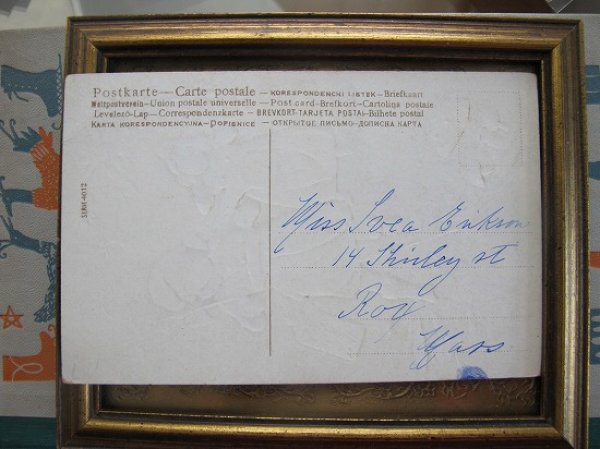 Postkarte — Carte postale — KORESPONDENCNI LISTEK — Briefkaart
Weltpostverein — Union postale universelle — Post card - Brefkort - Cartolina postale
Levelező-Lap — Correspondenzkarte — BREVKORT - TARJETA POSTAL - Bilhete postal
KARTA KORESPONDENCYJNA — DOPISNICE — ОТКРЫТОЕ ПИСЬМО — ДОПИСНА КАРТА
Miss Svea Erikson
14 Shirley st
Rox
Mass